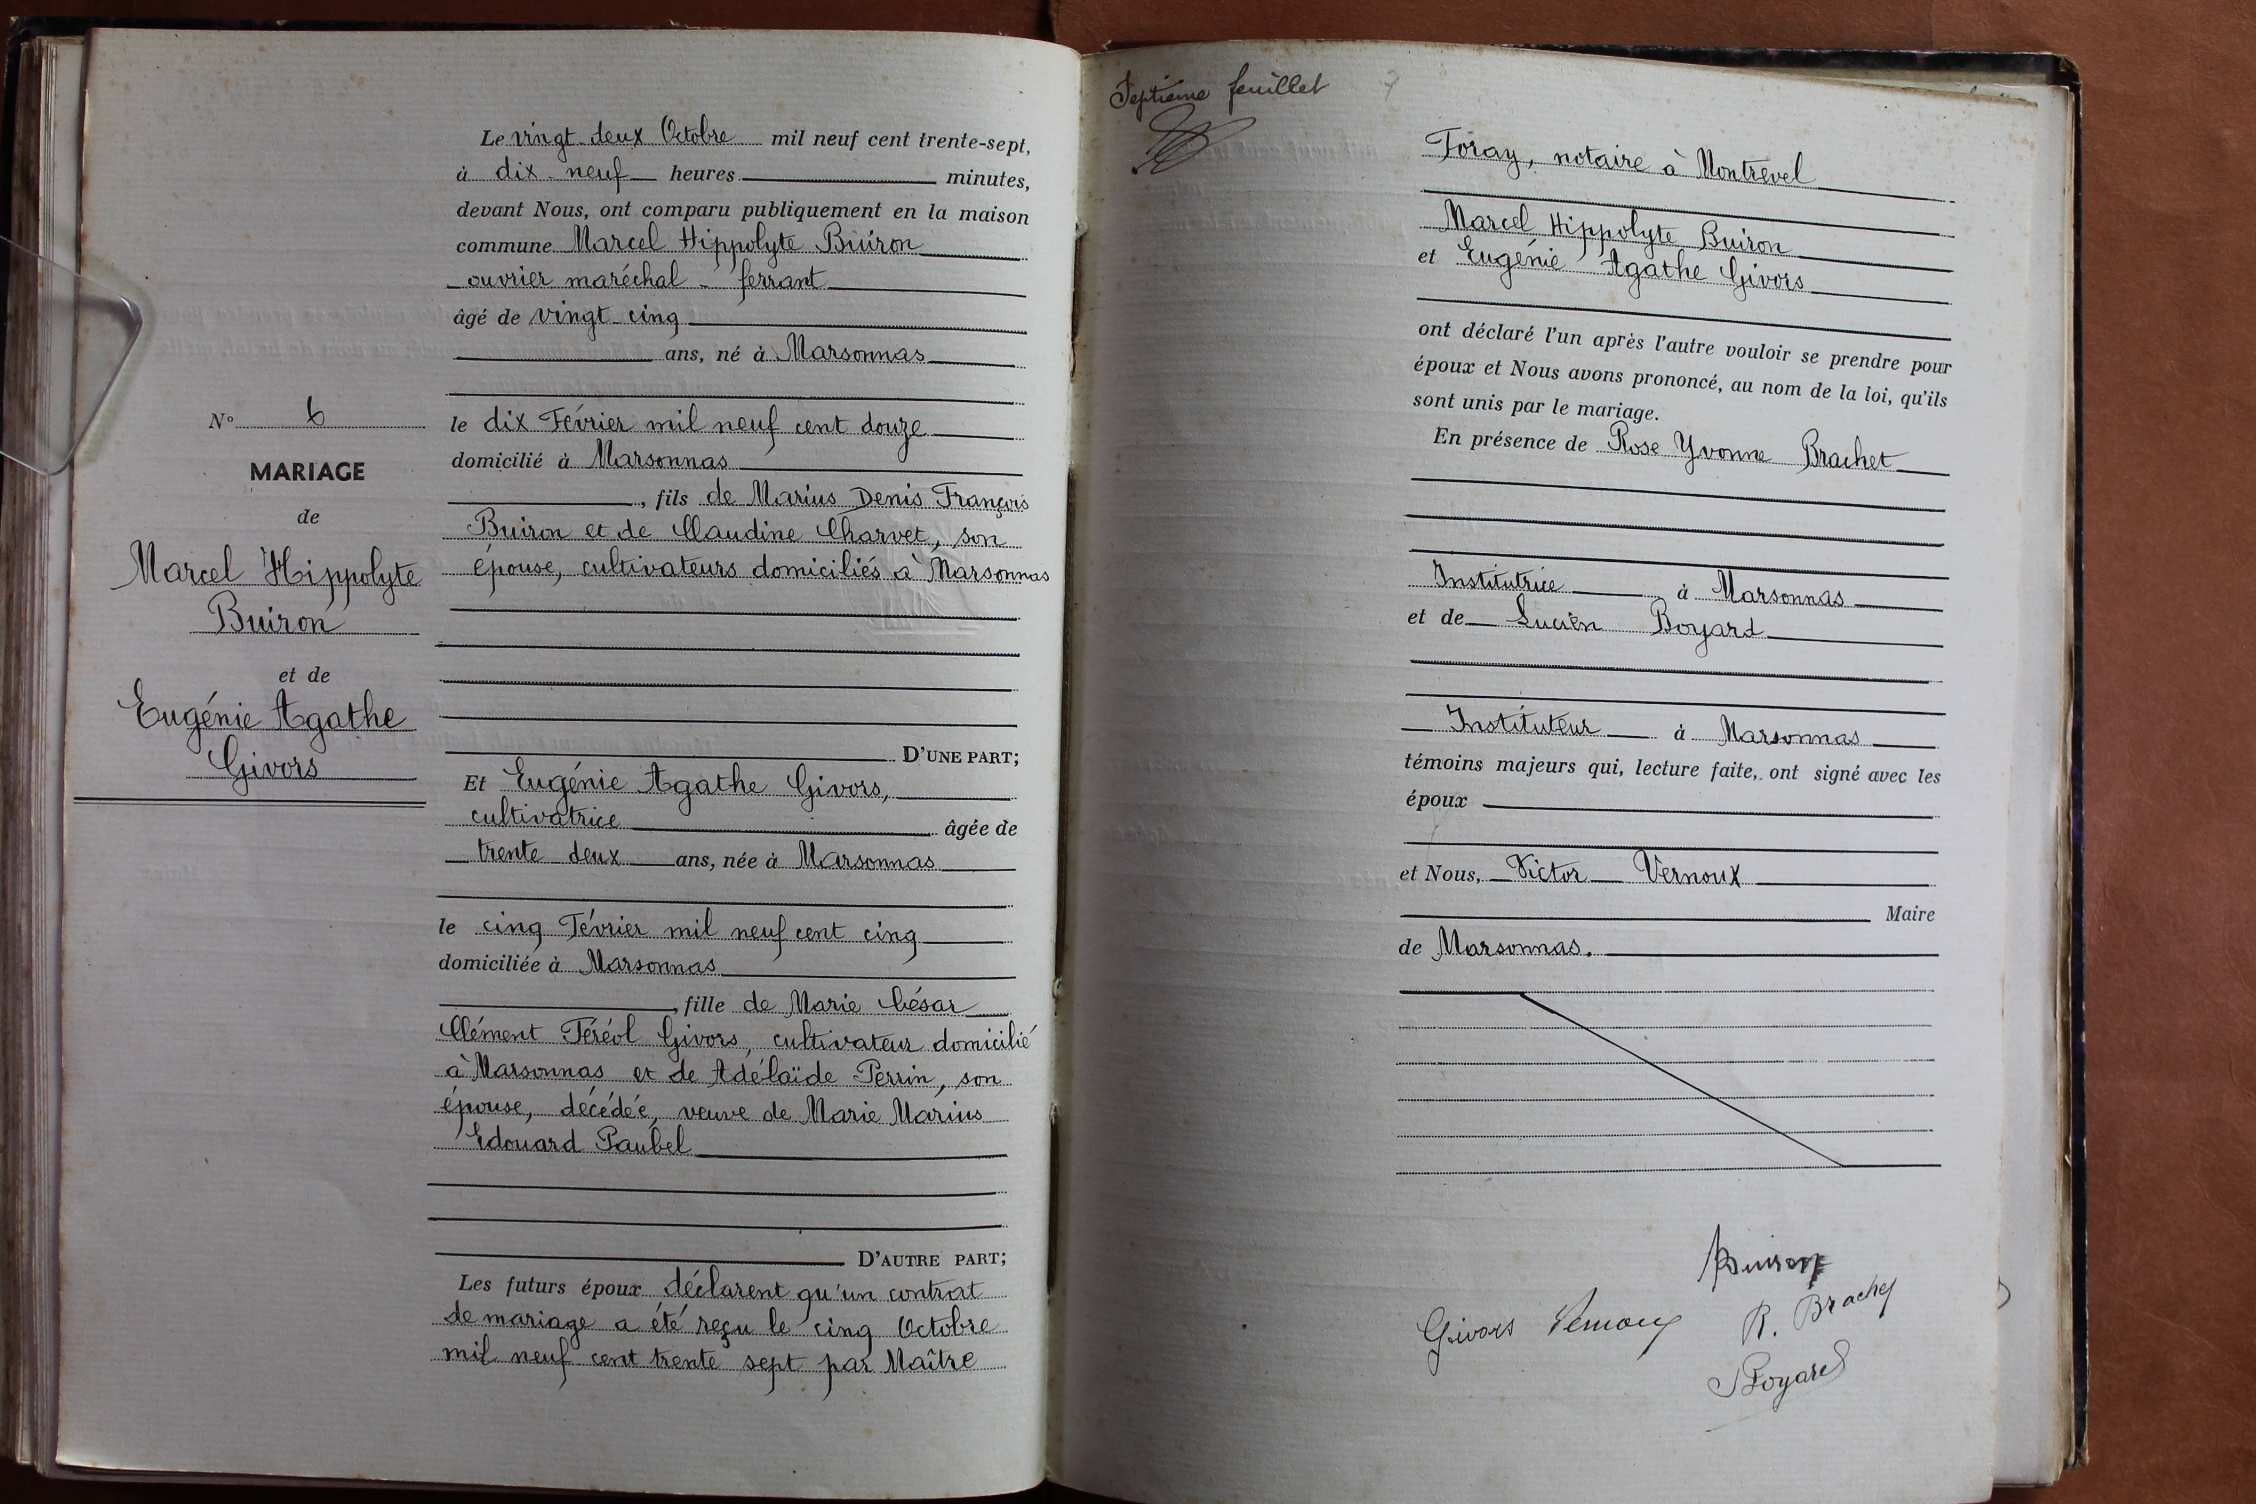 Le vingt-deux Octobre mil neuf cent trente-sept,
à dix-neuf heures minutes,
devant Nous, ont comparu publiquement en la maison
commune Marcel Hippolyte Buiron
ouvrier maréchal-ferrant
âgé de vingt-cinq
ans, né à Marsonnas
le dix Février mil neuf cent douze
domicilié à Marsonnas
, fils de Marius Denis François
Buiron et de Claudine Charvet, son
épouse, cultivateurs domiciliés à Marsonnas
D'UNE PART;
Et Eugénie Agathe Givors,
cultivatrice âgée de
trente deux ans, née à Marsonnas
le cinq Février mil neuf cent cinq
domiciliée à Marsonnas
, fille de Marie César
Clément Féréol Givors, cultivateur domicilié
à Marsonnas et de Adélaïde Perrin, son
épouse, décédée, veuve de Marie Marius
Edouard Paubel
D'AUTRE PART;
Les futurs époux déclarent qu'un contrat
de mariage a été reçu le cinq Octobre
mil neuf cent trente sept par Maître
N° 6
MARIAGE
de
Marcel Hippolyte
Buiron
et de
Eugénie Agathe
Givors
Septième feuillet 7
Foray, notaire à Montrevel
Marcel Hippolyte Buiron
et Eugénie Agathe Givors
ont déclaré l'un après l'autre vouloir se prendre pour
époux et Nous avons prononcé, au nom de la loi, qu'ils
sont unis par le mariage.
En présence de Rose Yvonne Brachet
Institutrice à Marsonnas
et de Lucien Boyard
Instituteur à Marsonnas
témoins majeurs qui, lecture faite, ont signé avec les
époux
et Nous, Victor Vernoux
Maire
de Marsonnas.
Buiron
Givors Vernoux R. Brachet
Boyard